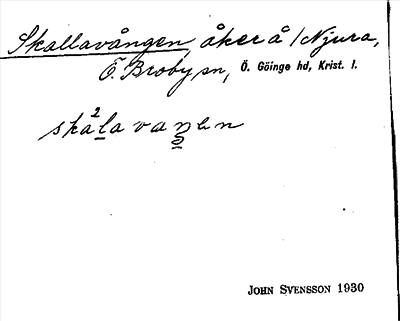 Skallavången åker å /Njura,
Ö. Broby sn, Ö. Göinge hd, Krist. l.
ska²lavaŋen
JOHN SVENSSON 1930